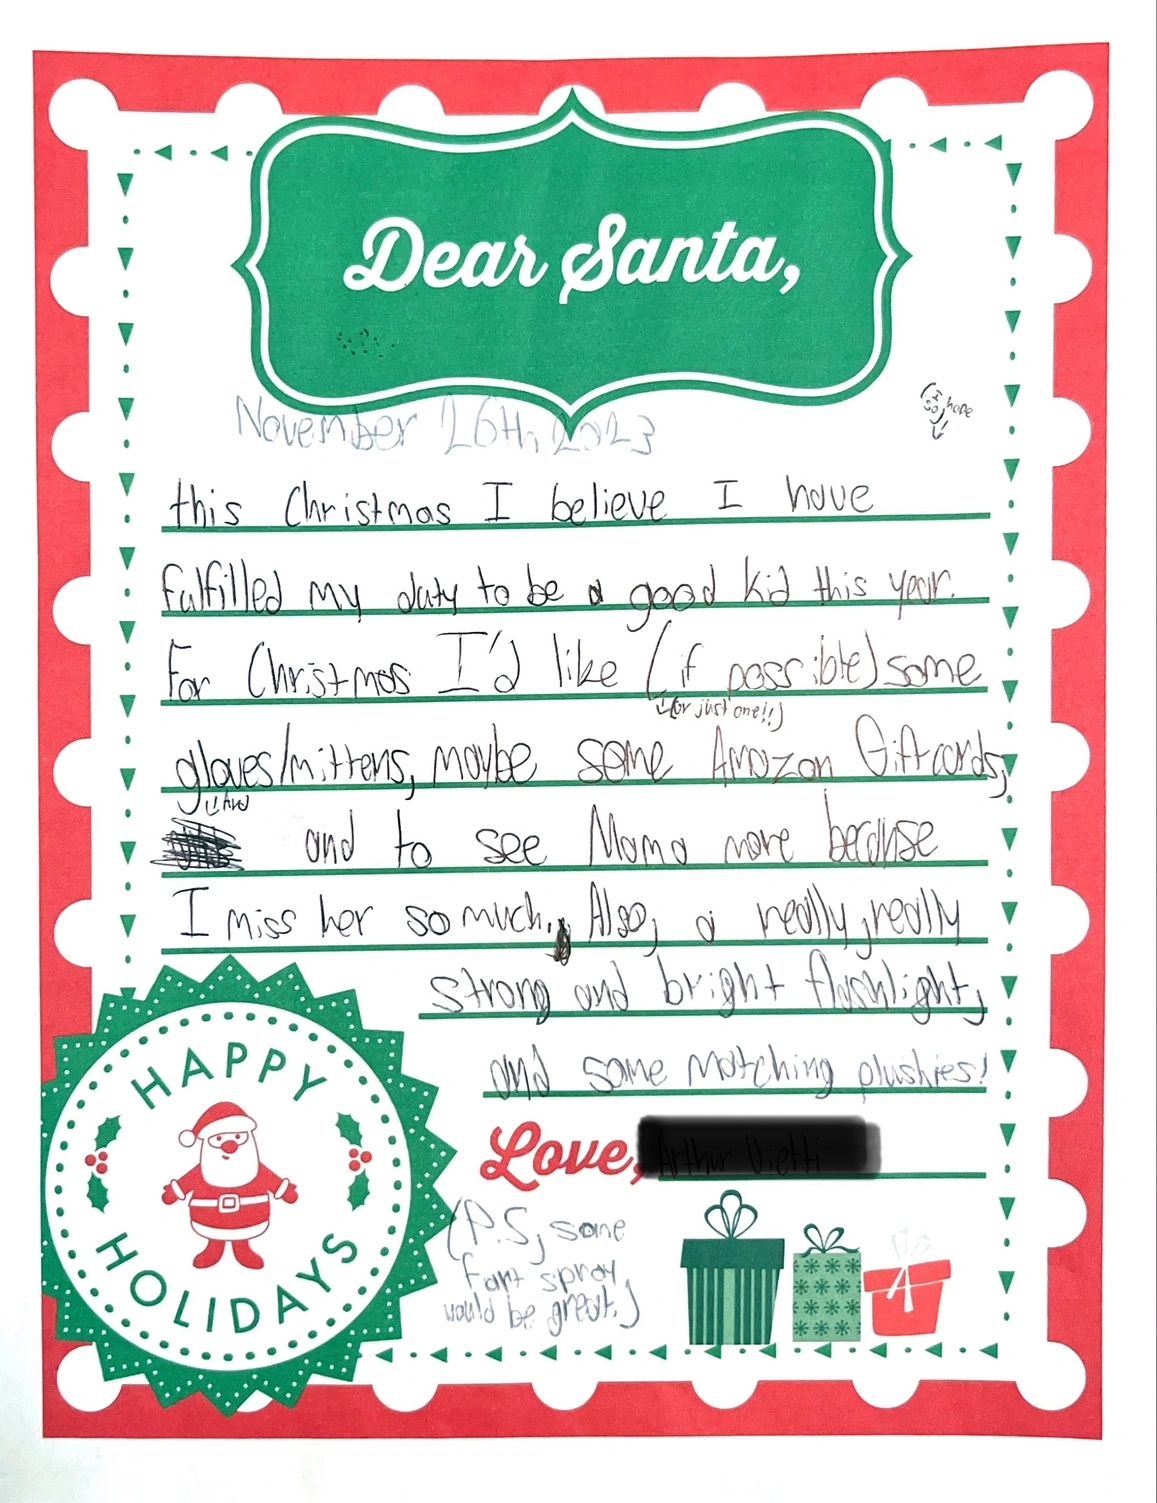 Dear Santa,
November 26th, 2023
(I hope
so)
this Christmas I believe I have
fulfilled my duty to be a good kid this year.
For Christmas I'd like (if possible) some
(or just one!!)
gloves/mittens, maybe some Amazon Giftcards,
and to see Mama more because
I miss her so much. Also, a really, really
strong and bright flashlight,
and some matching plushies!
Love,
HAPPY
HOLIDAYS
(P.S, some
fart spray
would be great.)